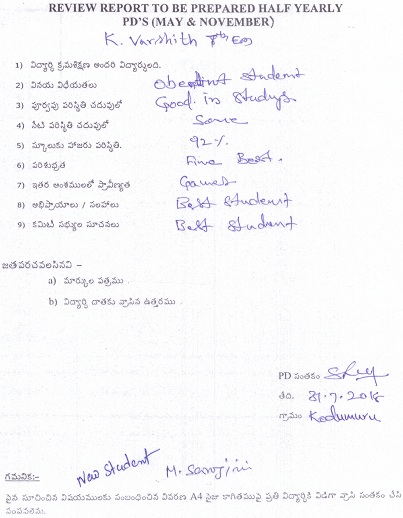 REVIEW REPORT TO BE PREPARED HALF YEARLY
PD'S (MAY & NOVEMBER)
K. Varshith 7th Em
1) విద్యార్థి క్రమశిక్షణ అందరి విద్యార్థులది.
2) వినయ విధేయతలు Obedint student
3) పూర్వపు పరిస్థితి చదువులో Good in Studys
4) నేటి పరిస్థితి చదువులో Same
5) స్కూలుకు హాజరు పరిస్థితి. 92%
6) పరిశుభ్రత Fine Best.
7) ఇతర అంశములలో ప్రావీణ్యత Games
8) అభిప్రాయాలు / సలహాలు Best Student
9) కమిటి సభ్యుల సూచనలు Best Student
జతపరచవలసినవి –
a) మార్కుల పత్రము
b) విద్యార్థి దాతకు వ్రాసిన ఉత్తరము
PD సంతకం
తేది. 31-7-2018
గ్రామం Kodumuru
New Student M. Sarojini
గమనిక:-
పైన సూచించిన విషయములకు సంబంధించిన వివరణ A4 సైజు కాగితముపై ప్రతి విద్యార్థికి విడిగా వ్రాసి సంతకం చేసి
పంపవలెను.